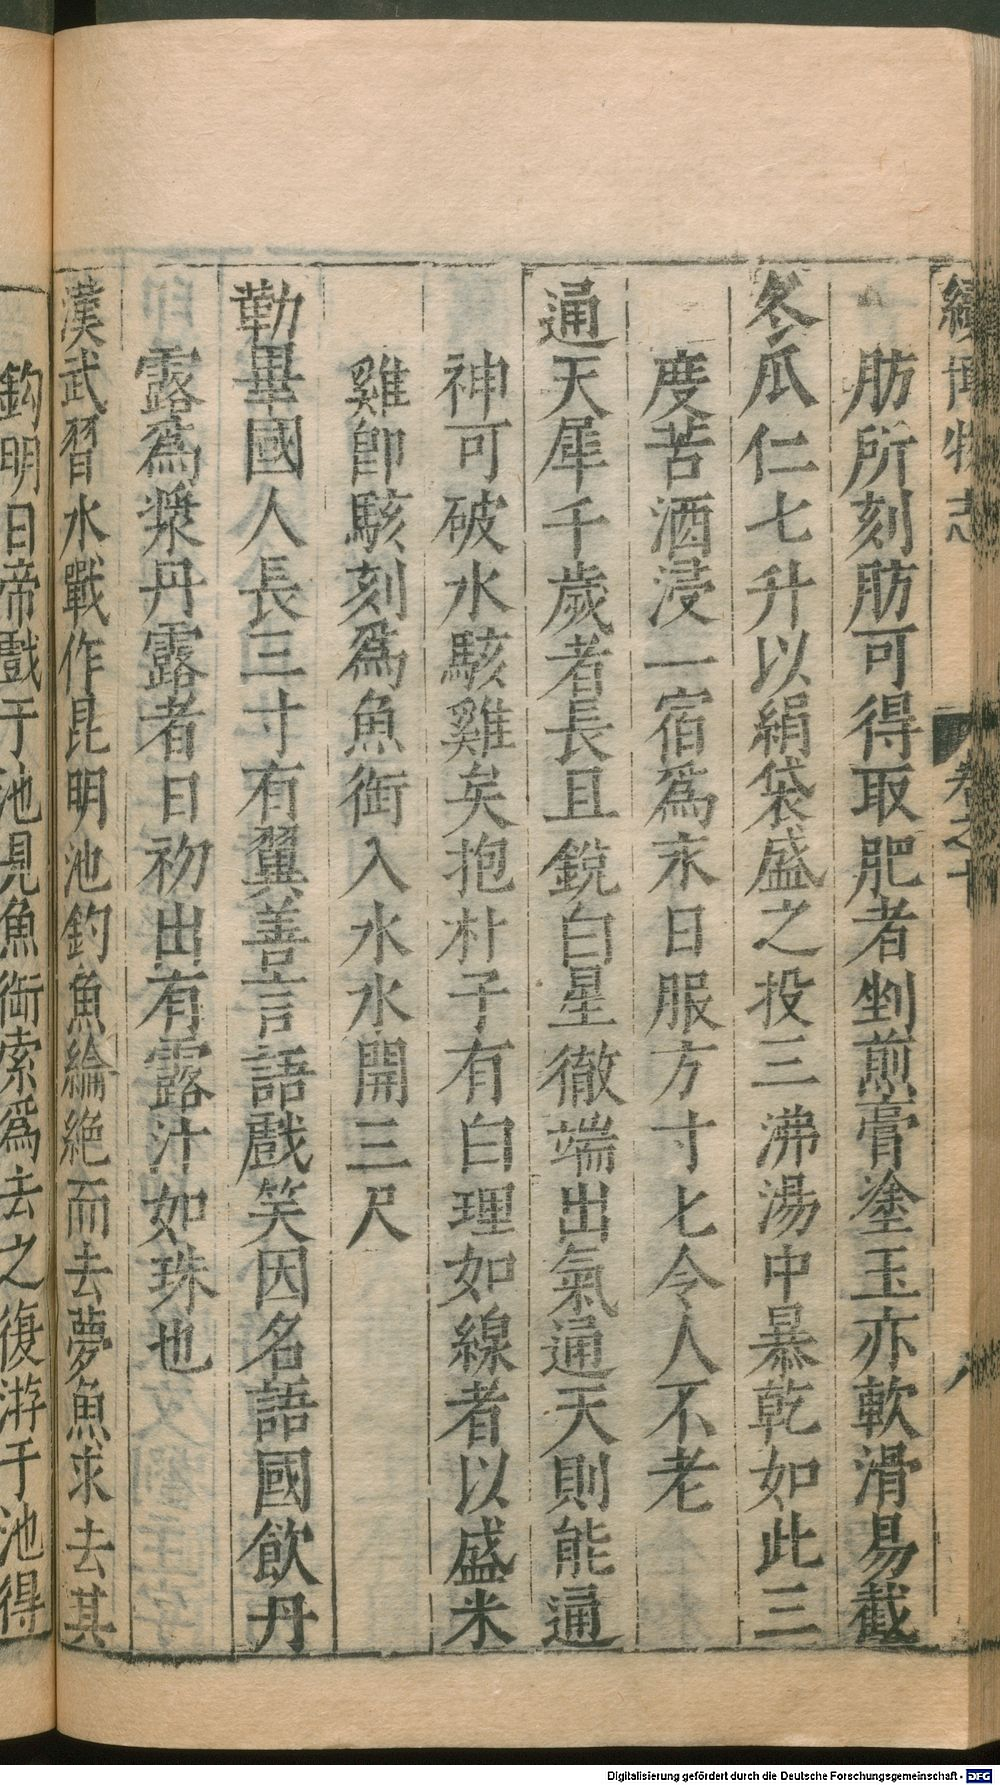 續博物志
卷之十
八
肪所刻肪可得取肥者剉煎膏塗玉亦軟滑易截
冬瓜仁七升以絹袋盛之投三沸湯中暴乾如此三
度苦酒浸一宿爲末日服方寸匕令人不老
通天犀千歲者長且銳白星徹端出氣通天則能通
神可破水駭雞矣抱朴子有白理如線者以盛米
雞卽駭刻爲魚銜入水水開三尺
勒畢國人長三寸有翼善言語戲笑因名語國飲丹
露爲漿丹露者日初出有露汁如珠也
漢武習水戰作昆明池釣魚綸絕而去夢魚求去其
鈎明日帝戲于池見魚銜索爲去之復游于池得
Digitalisierung gefördert durch die Deutsche Forschungsgemeinschaft - DFG